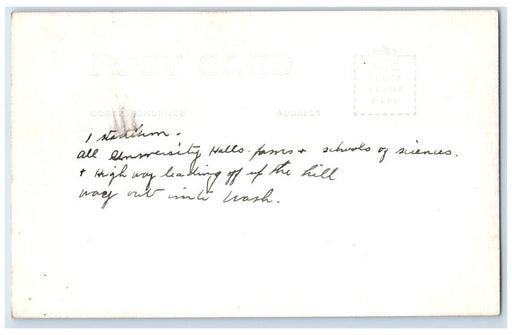 POST CARD
PLACE
STAMP
HERE
CORRESPONDENCE ADDRESS
1 stadium.
all University Halls. farms + schools of sciences.
+ High way leading off up the hill
way out into Wash.